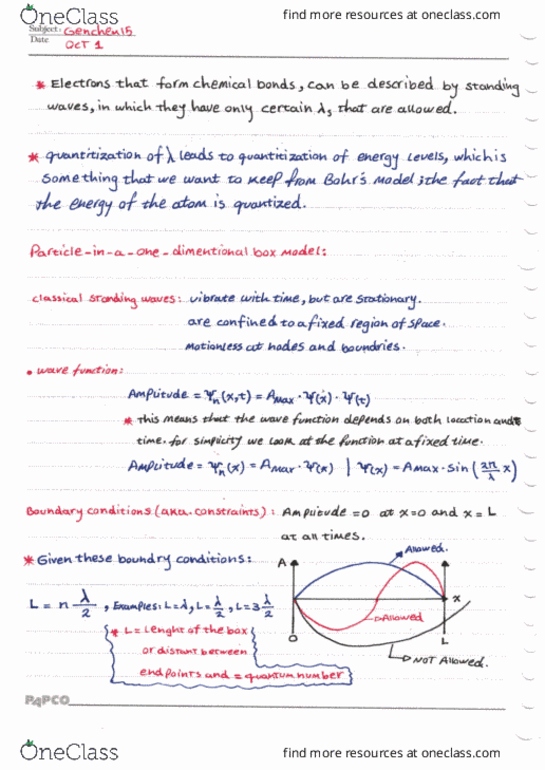 OneClass find more resources at oneclass.com
Subject: Genchem15
Date OCT 1
* Electrons that form chemical bonds, can be described by standing
waves, in which they have only certain λs that are allowed.
* quantitization of λ leads to quantitization of energy levels, which is
something that we want to keep from Bohr's model; the fact that
the energy of the atom is quantized.
Particle-in-a-one-dimentional box model:
classical standing waves: vibrate with time, but are stationary.
are confined to a fixed region of space.
Motionless at nodes and boundries.
• wave function:
Amplitude = Ψn(x,t) = AMax · Ψ(x) · Ψ(t)
* this means that the wave function depends on both location and
time. for simplicity we look at the function at a fixed time.
Amplitude = Ψn(x) = AMax · Ψ(x) | Ψ(x) = AMax · sin (2π/λ x)
Boundary conditions (aka. constraints): Amplitude = 0 at x=0 and x = L
at all times.
* Given these boundry conditions:
L = n λ/2 , Examples: L=λ, L=λ/2, L=3 λ/2
* L = Lenght of the box
or distant between
end points and = quantum number
A
Allowed.
x
Allowed
O
L
NOT Allowed.
PAPCO
OneClass find more resources at oneclass.com